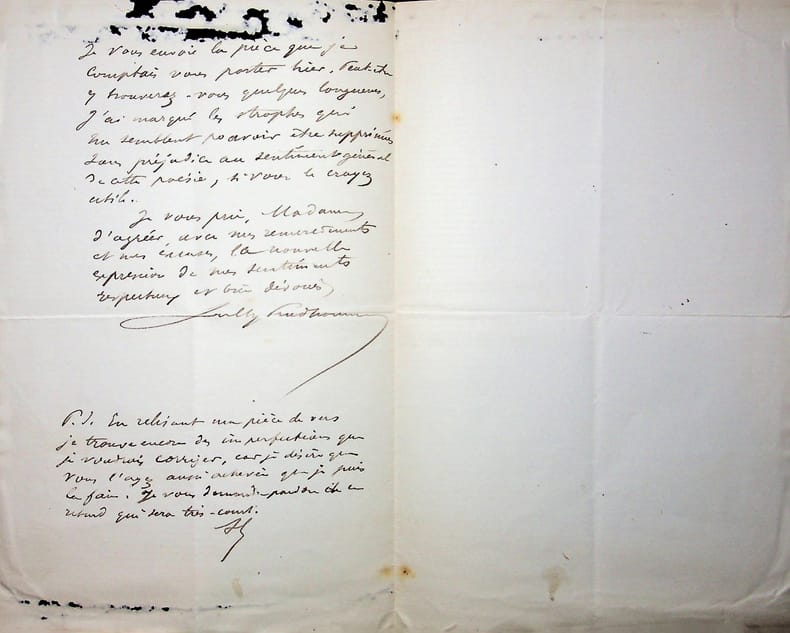 Je vous envoie la pièce que je
comptais vous porter hier. Peut-être
y trouverez-vous quelques longueurs,
j'ai marqué les strophes qui
me semblent pouvoir être supprimées
sans préjudice au sentiment général
de cette poésie, si vous le croyez
utile.
Je vous prie, Madame,
d'agréer, avec mes remerciements
et mes excuses, la nouvelle
expression de mes sentiments
respectueux et bien dévoués
Sully Prudhomme
P.S. En relisant ma pièce de vers
je trouve encore des imperfections que
je voudrais corriger, car je désire que
vous l'ayez aussi achevée que je puis
la faire. Je vous demande pardon de ce
retard qui sera très-court.